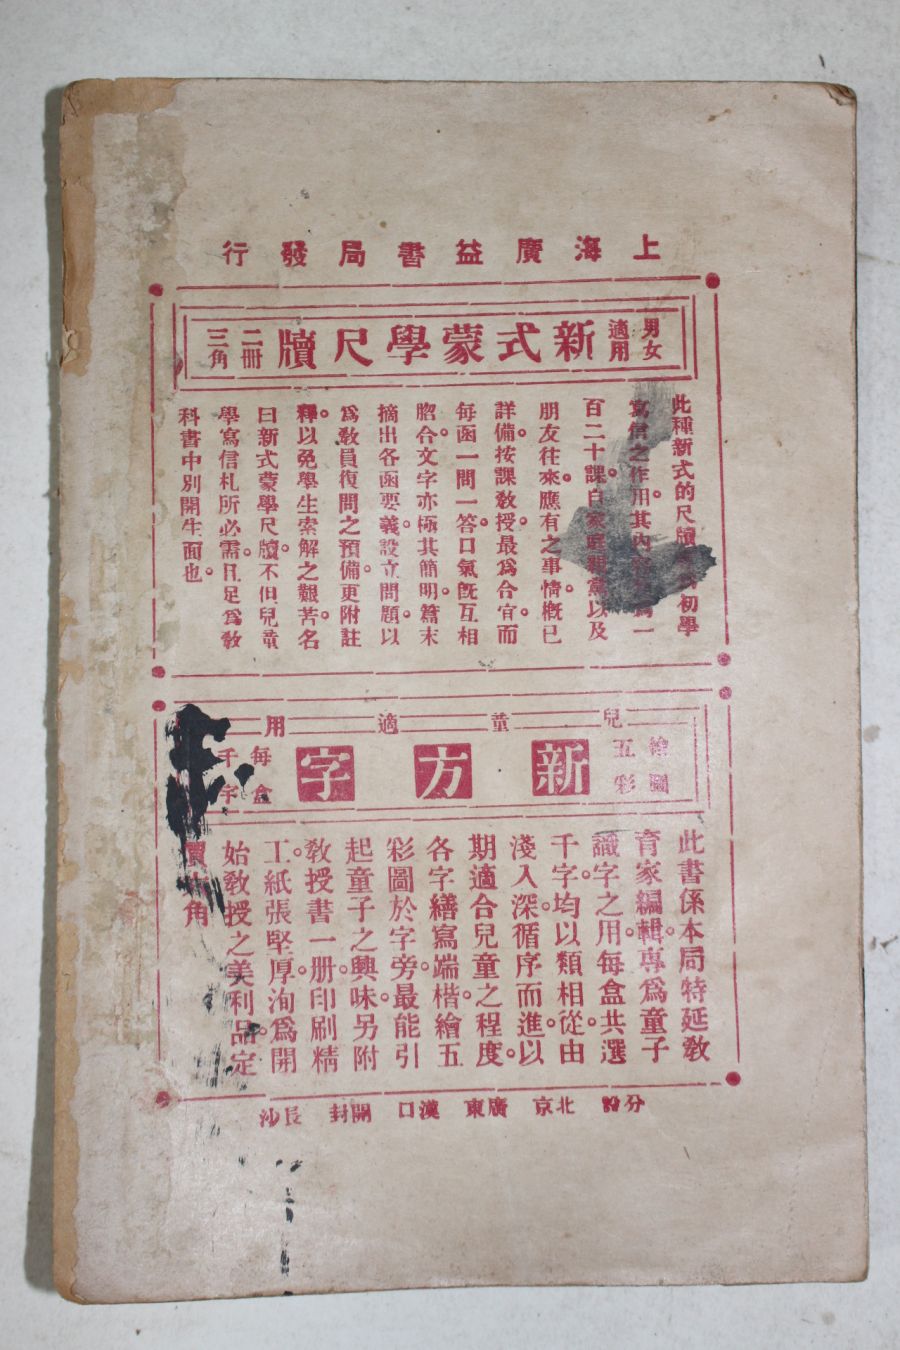 上海廣益書局發行
男女
適用
新式蒙學尺牘
二冊
三角
此種新式的尺牘 初學
寫信之作用。其內 一
百二十課。自家庭親黨以及
朋友往來。應有之事情。概已
詳備。按課教授。最爲合宜。而
每函一問一答。口氣旣互相
脗合。文字亦極其簡明。篇末
摘出各函要義。設立問題。以
爲教員復問之預備。更附註
釋。以免學生索解之艱苦。名
曰新式蒙學尺牘。不但兒童
學寫信札所必需。且足爲敎
科書中別開生面也。
兒童適用
繪圖
五彩
新方字
每盒
千字
此書係本局特延敎
育家編輯。專爲童子
識字之用。每盒共選
千字。均以類相從。由
淺入深。循序而進。以
期適合兒童之程度。
各字繕寫端楷。繪五
彩圖於字旁。最能引
起童子之興味。另附
敎授書一册。印刷精
工。紙張堅厚。洵爲開
始敎授之美利品。定
價 角
分發 北京 廣東 漢口 開封 長沙